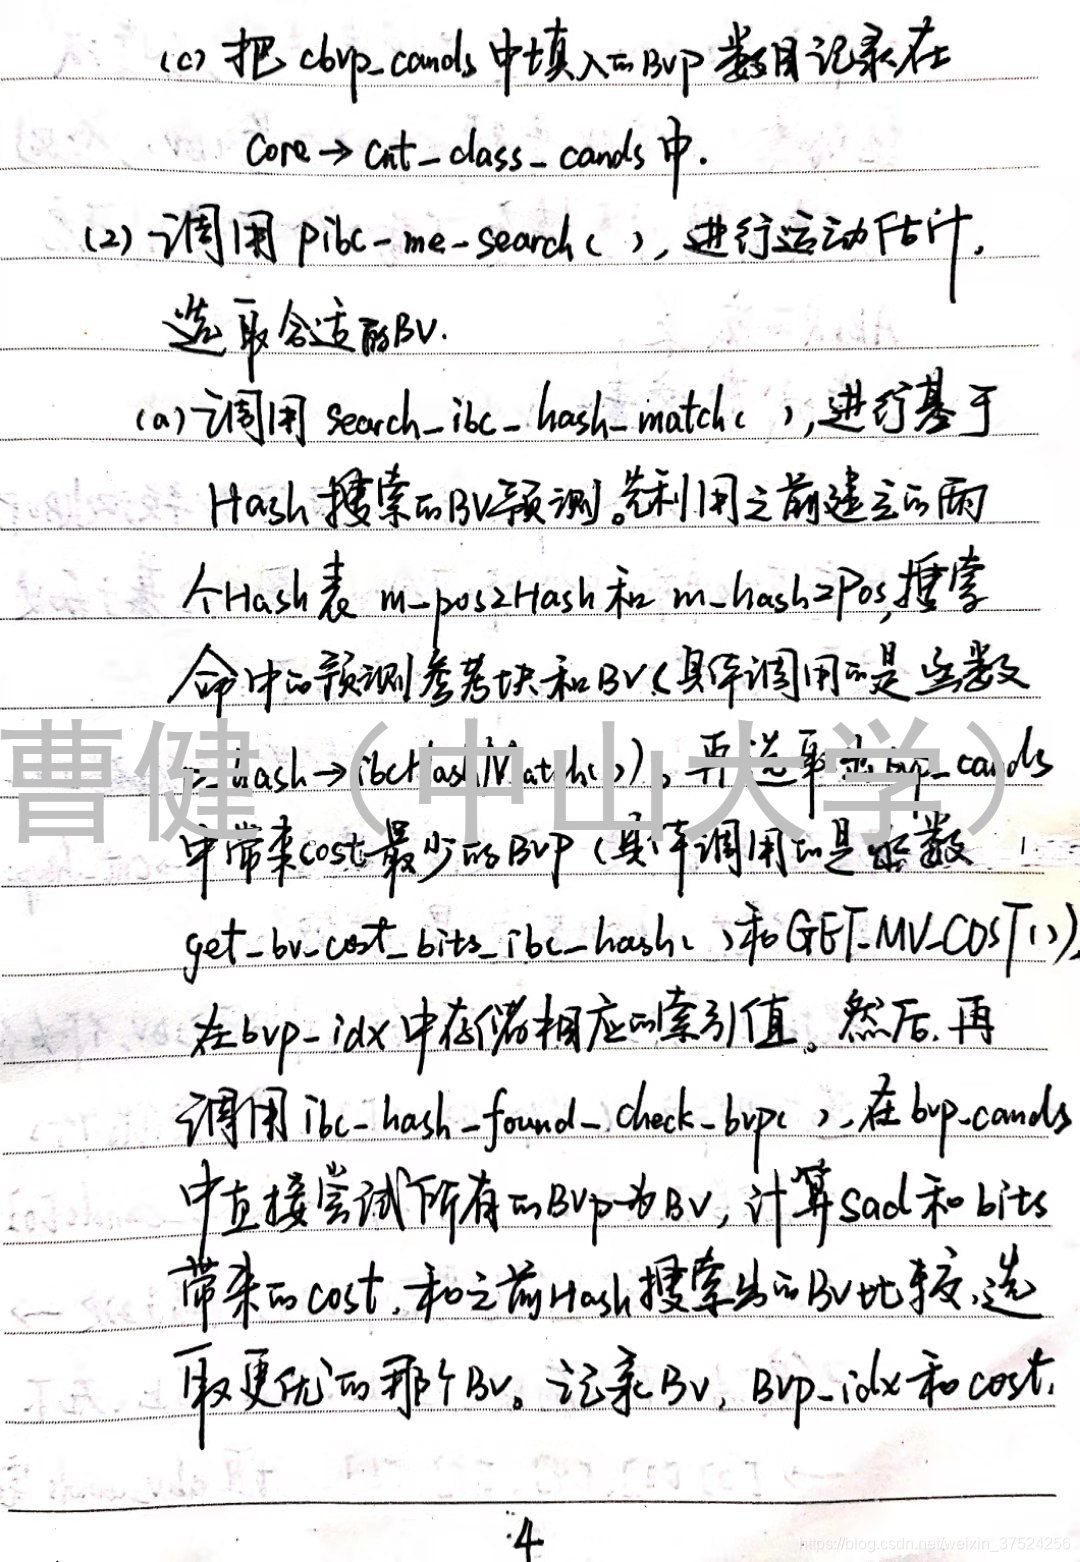 (c) 把 cbvp_cands 中填入的Bvp 数目记录在
Core → cnt_class_cands 中.
(2) 调用 pibc-me-search( ), 进行运动估计,
选取合适的BV.
(a) 调用 search_ibc_hash_match( ),进行基于
Hash 搜索的BV预测。先利用之前建立的两
个Hash表 m_pos2Hash和 m_hash2Pos,搜索
命中的预测参考块和BV(具体调用的是函数
hash→ibcHashMatch())。再选取出bvp_cands
中带来cost最少的BVP (具体调用的是函数
get_bv_cost_bits_ibc_hash( )和GET_MV_COST()),
在bvp_idx中存储相应的索引值。然后,再
调用ibc_hash_found_check_bvp( ),在bvp_cands
中直接尝试所有的BVp为BV,计算sad和bits
带来的cost,和之前Hash搜索出的BV比较,选
取更优的那个BV。记录BV, Bvp_idx和cost.
4
曹健（中山大学）
https://blog.csdn.net/weixin_37524256